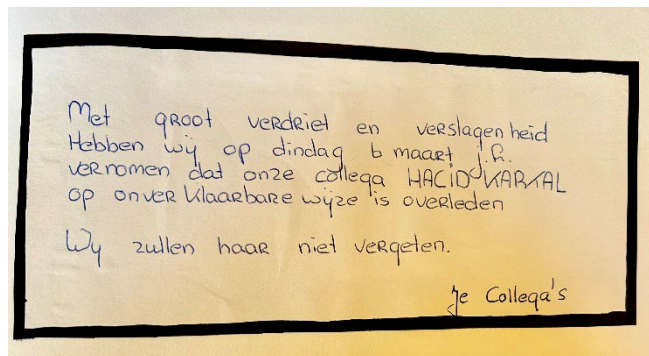 Met groot verdriet en verslagenheid
Hebben wij op dindag 6 maart j.l.
vernomen dat onze collega HACID KARKAL
op onverklaarbare wijze is overleden
Wij zullen haar niet vergeten.
Je Collega's